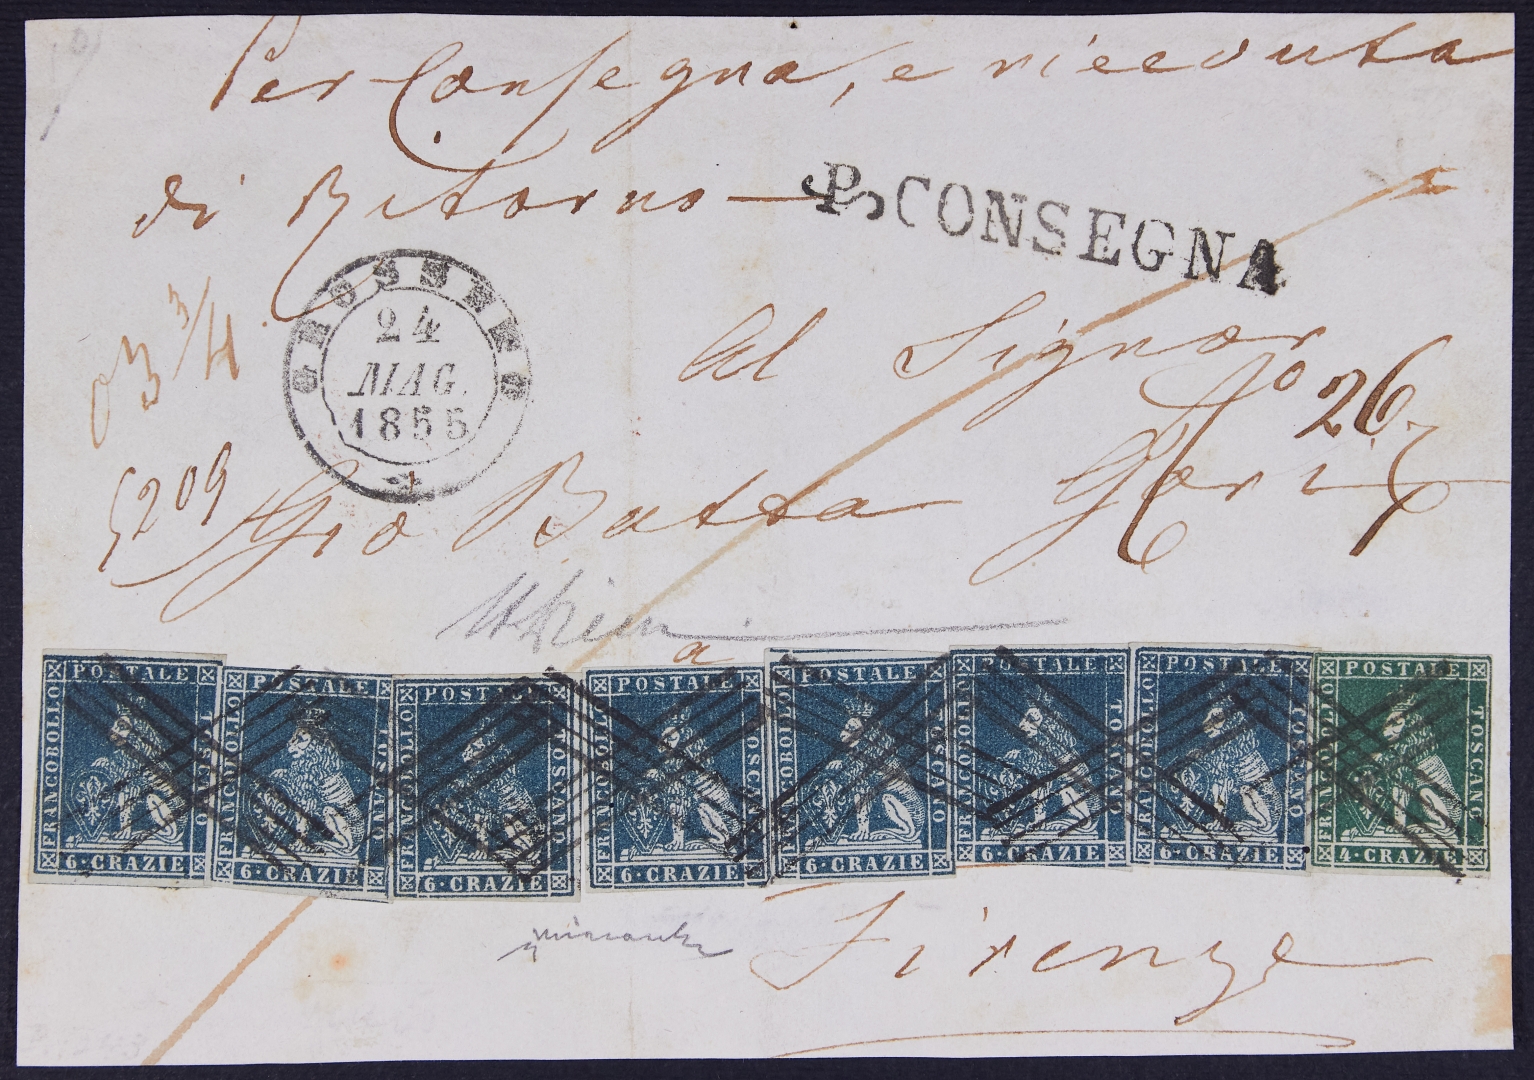 Per Consegna, e riceevuta
di Ritorno —
P. CONSEGNA
GROSSETO
24
MAG.
1855
3 3/4
Al Signor
No 26
5209
Gio Batta Gori
a
FRANCOBOLLO POSTALE TOSCANO
6·CRAZIE
FRANCOBOLLO POSTALE TOSCANO
6·CRAZIE
FRANCOBOLLO POSTALE TOSCANO
6·CRAZIE
FRANCOBOLLO POSTALE TOSCANO
6·CRAZIE
FRANCOBOLLO POSTALE TOSCANO
6·CRAZIE
FRANCOBOLLO POSTALE TOSCANO
6·CRAZIE
FRANCOBOLLO POSTALE TOSCANO
6·CRAZIE
FRANCOBOLLO POSTALE TOSCANO
4·CRAZIE
Firenze